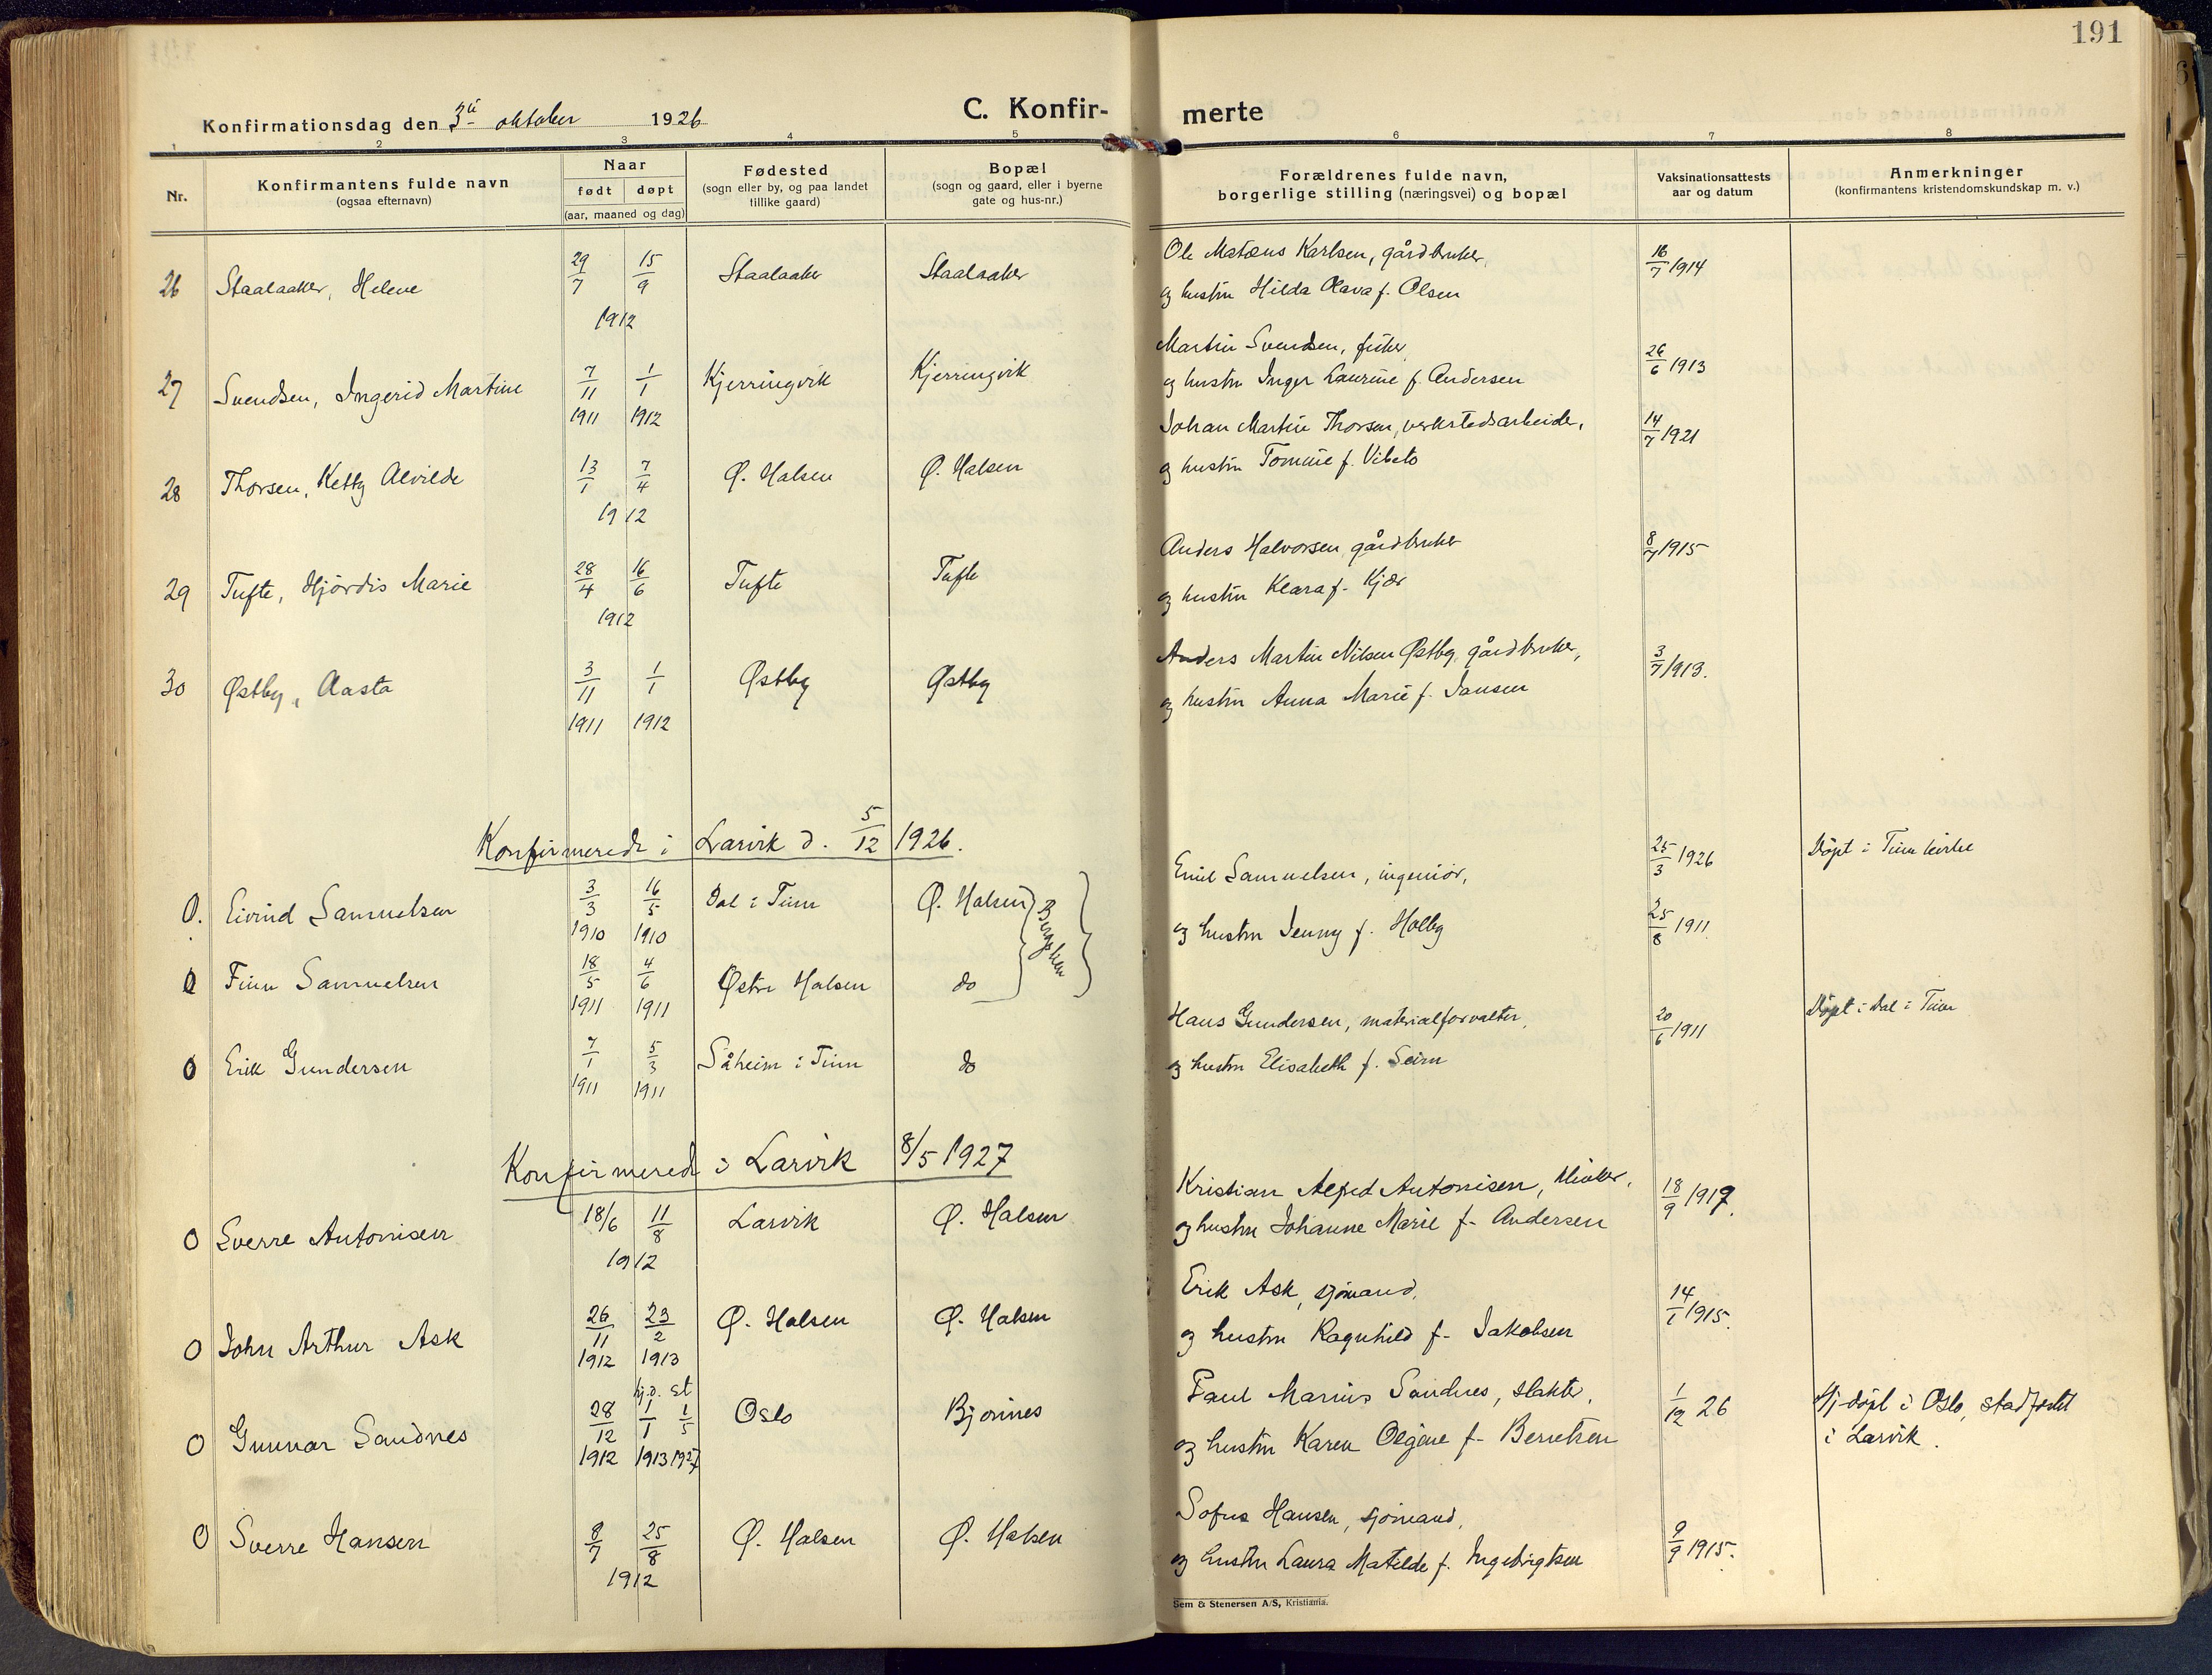 191
Konfirmationsdag den 3die oktober 1926
C. Konfir-
merte
1 2 3 4 5 6 7 8
Nr.
Konfirmantens fulde navn
(ogsaa efternavn)
Naar
født døpt
(aar, maaned og dag)
Fødested
(sogn eller by, og paa landet
tillike gaard)
Bopæl
(sogn og gaard, eller i byerne
gate og hus-nr.)
Forældrenes fulde navn,
borgerlige stilling (næringsvei) og bopæl
Vaksinationsattests
aar og datum
Anmerkninger
(konfirmantens kristendomskundskap m. v.)
26 Staalaaker, Helene 29/7 15/9 1912 Staalaaker Staalaaker
Ole Matæus Karlsen, gårdbruker,
og hustru Hilda Olava f. Olsen
16/7 1914
27 Svendsen, Ingerid Martine 7/11 1911 1/1 1912 Kjerringvik Kjerringvik
Martin Svendsen, fisker,
og hustru Inger Laurine f. Andersen
26/6 1913
28 Thorsen, Ketty Alvilde 13/1 7/4 1912 Ø. Halsen Ø. Halsen
Johan Martin Thorsen, verkstedsarbeider,
og hustru Tomine f. Vibeto
14/7 1921
29 Tufte, Hjördis Marie 28/4 16/6 1912 Tufte Tufte
Anders Halvorsen, gårdbruker
og hustru Klara f. Kjær
8/7 1915
30 Østby, Aasta 3/11 1911 1/1 1912 Østby Østby
Anders Martin Nilsen Østby, gårdbruker,
og hustru Anna Marie f. Jansen
3/7 1913.
Konfirmerede i Larvik d. 5/12 1926.
0. Eivind Samuelsen 3/3 1910 16/5 1910 Dal i Tinn Ø. Halsen
Emil Samuelsen, ingeniör,
og hustru Jenny f. Holby
25/3 1926
Döpt i Tinn kirke
0 Finn Samuelsen 18/5 1911 4/6 1911 Østre Halsen do
25/8 1911
0 Erik Gundersen 7/1 1911 5/3 1911 Såheim i Tinn do
Hans Gundersen, materialforvalter,
og hustru Elisabeth f. Seim
20/6 1911
Döpt i Dal i Tinn
Konfirmered i Larvik 8/5 1927
0 Sverre Antonisen 18/6 11/8 1912 Larvik Ø. Halsen
Kristian Alfred Antonisen, klinker,
og hustru Johanne Marie f. Andersen
18/9 1917.
0 John Arthur Ask 26/11 1912 23/2 1913 Ø. Halsen Ø. Halsen
Erik Ask, sjömand,
og hustru Ragnhild f. Jakobsen
14/1 1915.
0 Gunnar Sandnes 28/12 1912 hj.d. 1/1 1913 st 1/5 1927 Oslo Bjönnes
Paul Marius Sandnes, slakter,
og hustru Karen Olgine f. Berntsen
1/12 26
Hj döpt i Oslo, stadfestet
i Larvik.
0 Sverre Hansen 8/7 25/8 1912 Ø. Halsen Ø. Halsen
Sofus Hansen, sjömand,
og hustru Laura Matilde f. Ingebrigtsen
9/9 1915.
Sem & Stenersen A/S, Kristiania.